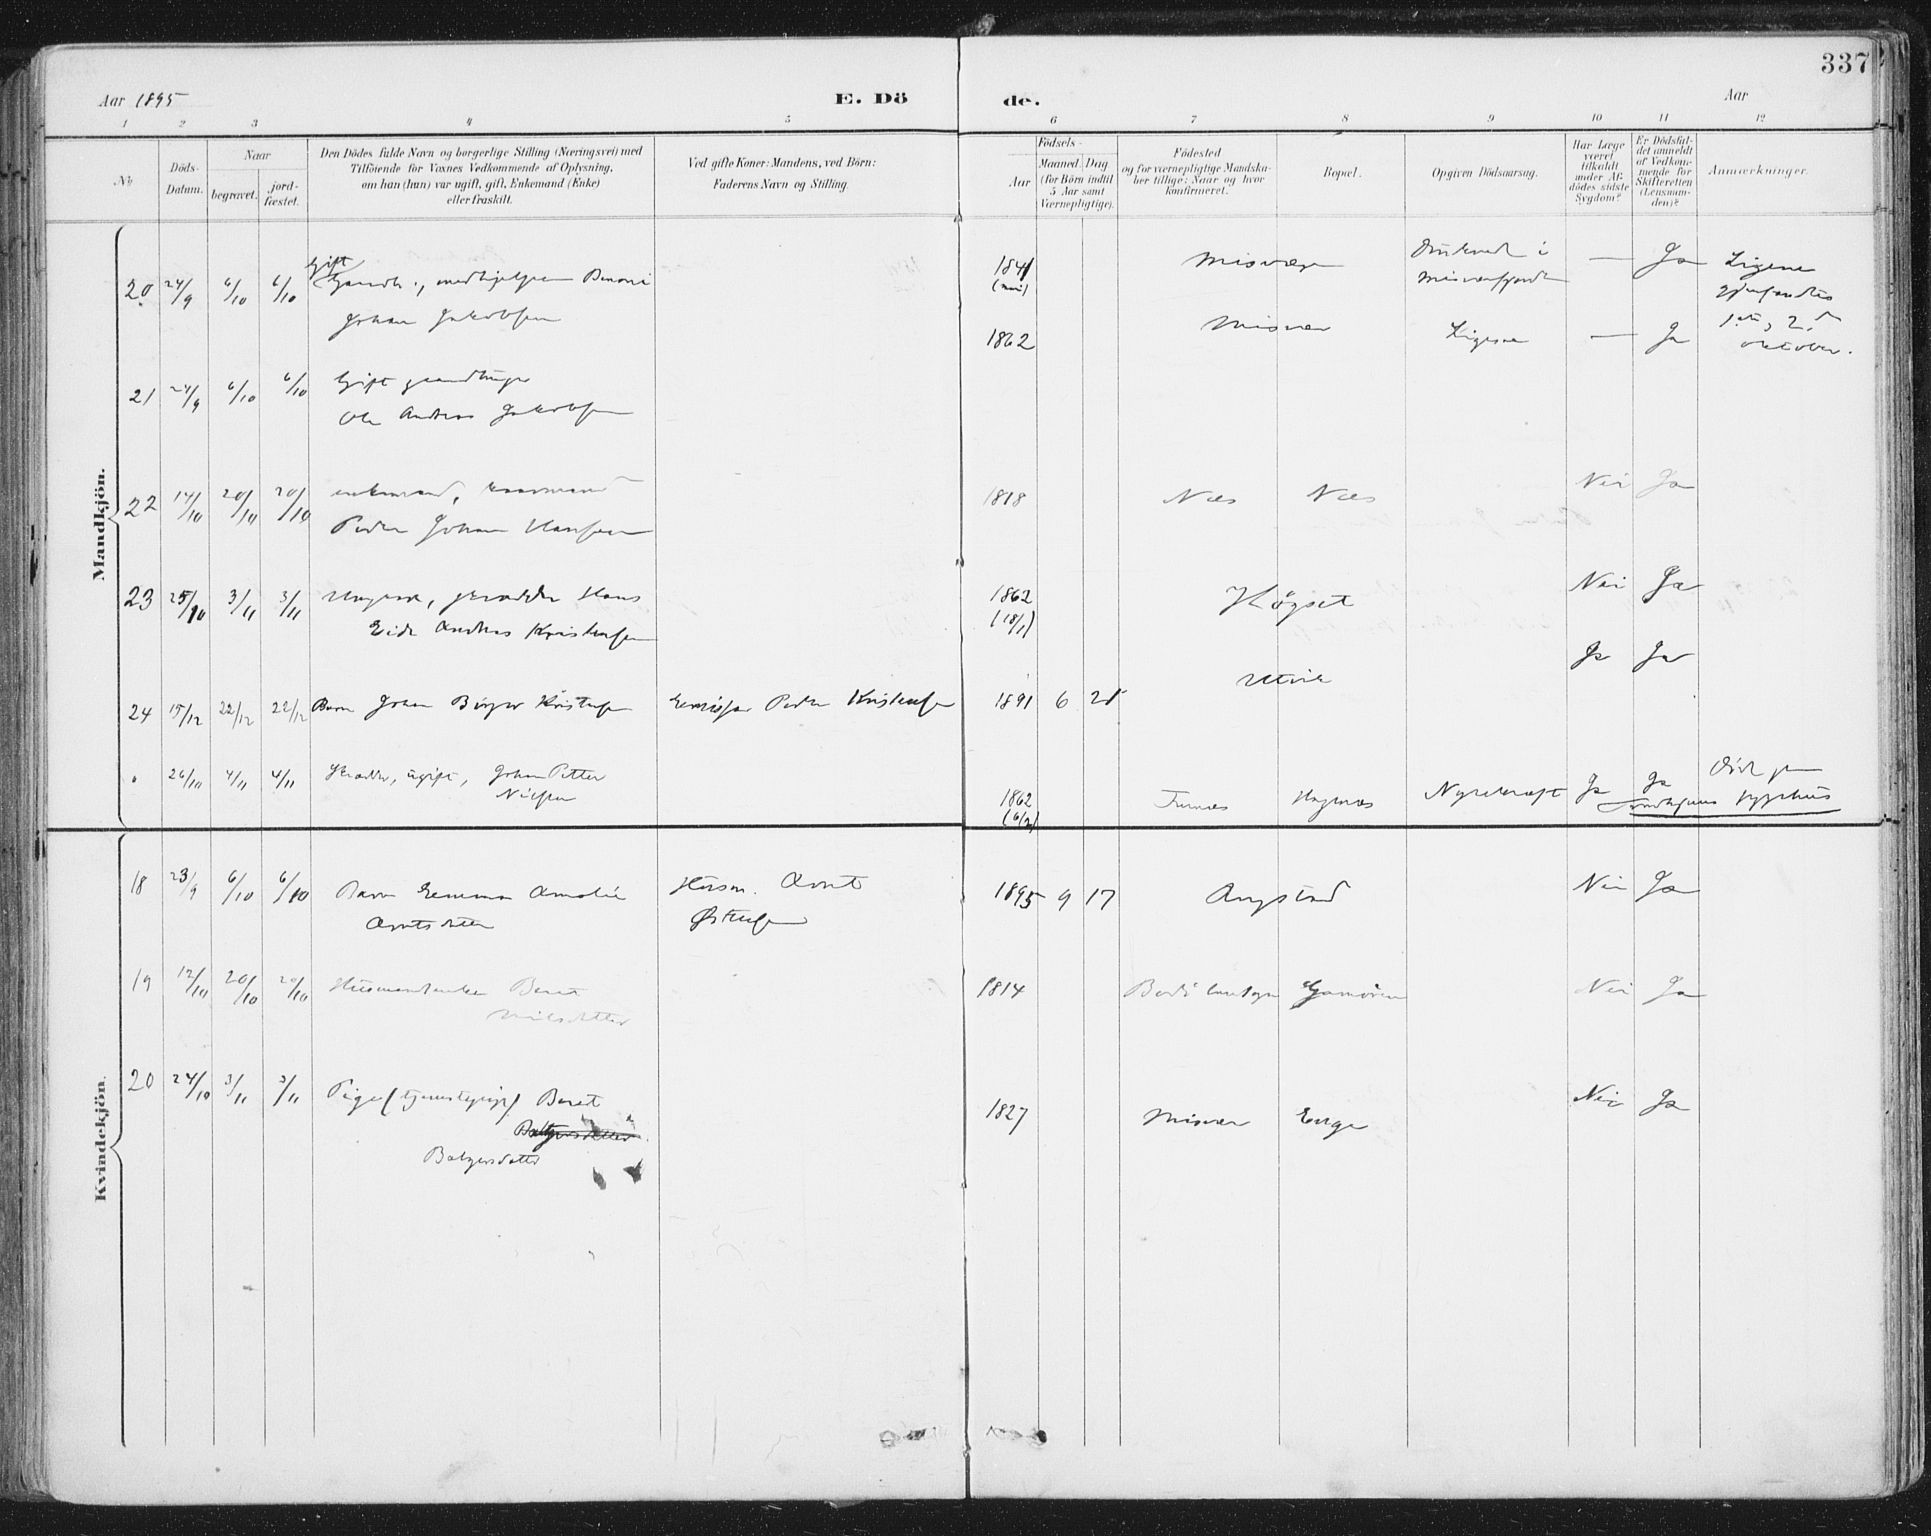 337
Aar 1895
E. Dö
de.
Aar
1 2 3 4 5 6 7 8 9 10 11 12
No
Döds-
Datum.
Naar
begravet.
jord-
fæstet.
Den Dödes fulde Navn og borgerlige Stilling (Næringsvei) med
Tilföiende for Voxnes Vedkommende af Oplysning,
om han (hun) var ugift, gift, Enkemand (Enke)
eller fraskilt.
Ved gifte Koner: Mandens, ved Börn:
Faderens Navn og Stilling.
Födsels-
Aar
Maaned. Dag
(for Börn indtil
5 Aar samt
Værnepligtige).
Födested
og for værnepligtige Mandska-
ber tillige: Naar og hvor
konfirmeret.
Bopæl.
Opgiven Dödsaarsag.
Har Læge
været
tilkaldt
under Af-
dödes sidste
Sygdom?
Er Dödsfal-
det anmeldt
af Vedkom-
mende for
Skifteretten
(Lensman-
den)?
Anmærkninger.
Mandkjön.
Gift
20 24/9 6/10 6/10 Benoni
Johan Jakobsen
1841 Misvær i Misværfjorden — Ja Ligene
gjenfandtes
1ste, 2den
oktober.
21 24/9 6/10 6/10 Gift
Ole Andreas Jakobsen
1862 Misvær Ligesaa — Ja
22 14/10 20/10 20/10 enkemand,
Peder Johan Hansen
1818 Næs Næs Nei Ja
23 25/10 3/11 3/11 Ungkar, skrædder Hans
Eide Andreas Kristensen
1862
(18/1)
Høgset Nei Ja
24 15/12 22/12 22/12 Barn Johan Birger Kristensen Peder Kristensen
1891 6 21 Utvik Ja Ja
" 26/10 4/11 4/11 Skrædder, ugift, Johan Petter
Nilsen
1862
(6/2)
Furnæs Nyrekræft Ja Ja
Kvindekjön.
18 23/9 6/10 6/10 Barn Emma Amalie
Arntsdatter
Husm. Arnt
1895 9 17 Angstad Nei Ja
19 12/10 20/10 20/10 Husmandsenke Beret
Nilsdatter
1814 Bodø landsogn Nei Ja
20 24/10 3/11 3/11 Pige (tjenestepige) Beret
Baltzersdatter
1827 Misvær Enge Nei Ja